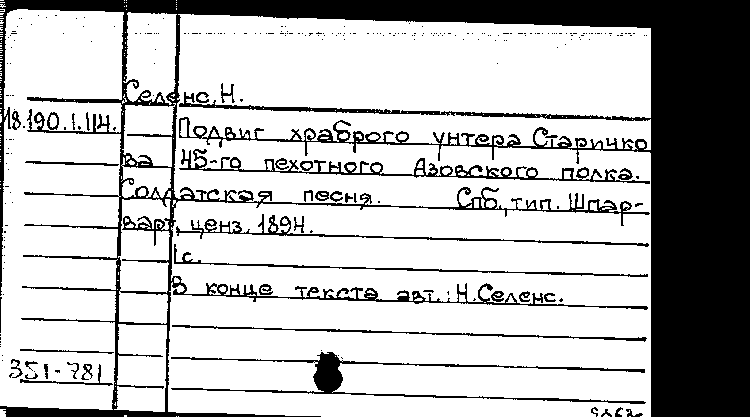 Селенс, Н.
18.190.1.114.
Подвиг храброго унтера Старичко
ва 45-го пехотного Азовского полка.
Солдатская песня. Спб., тип. Шпар-
варт, ценз. 1894.
1с.
В конце текста авт.: Н.Селенс.
351-781